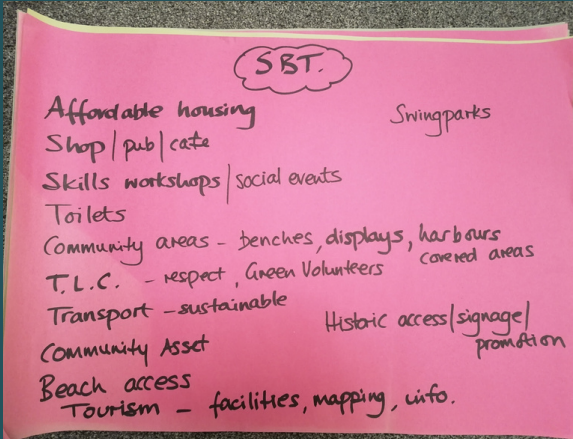 SBT.
Affordable housing
Swingparks
Shop/pub/cafe
Skills workshops/social events
Toilets
Community areas - benches, displays, harbours
covered areas
T.L.C. - respect, Green Volunteers
Transport - sustainable
Historic access/signage/
promotion
Community Asset
Beach access
Tourism - facilities, mapping, info.